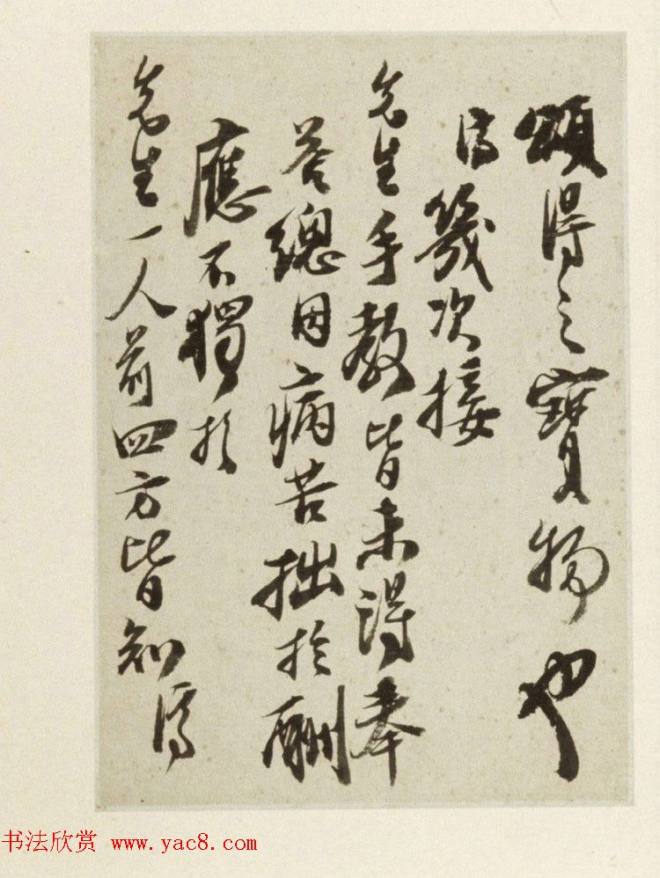 頌得之寶物也
濟幾次接
先生手教皆未得奉
答總因病苦拙於酬
應不獨於
先生一人前四方皆知濟
书法欣赏 www.yac8.com